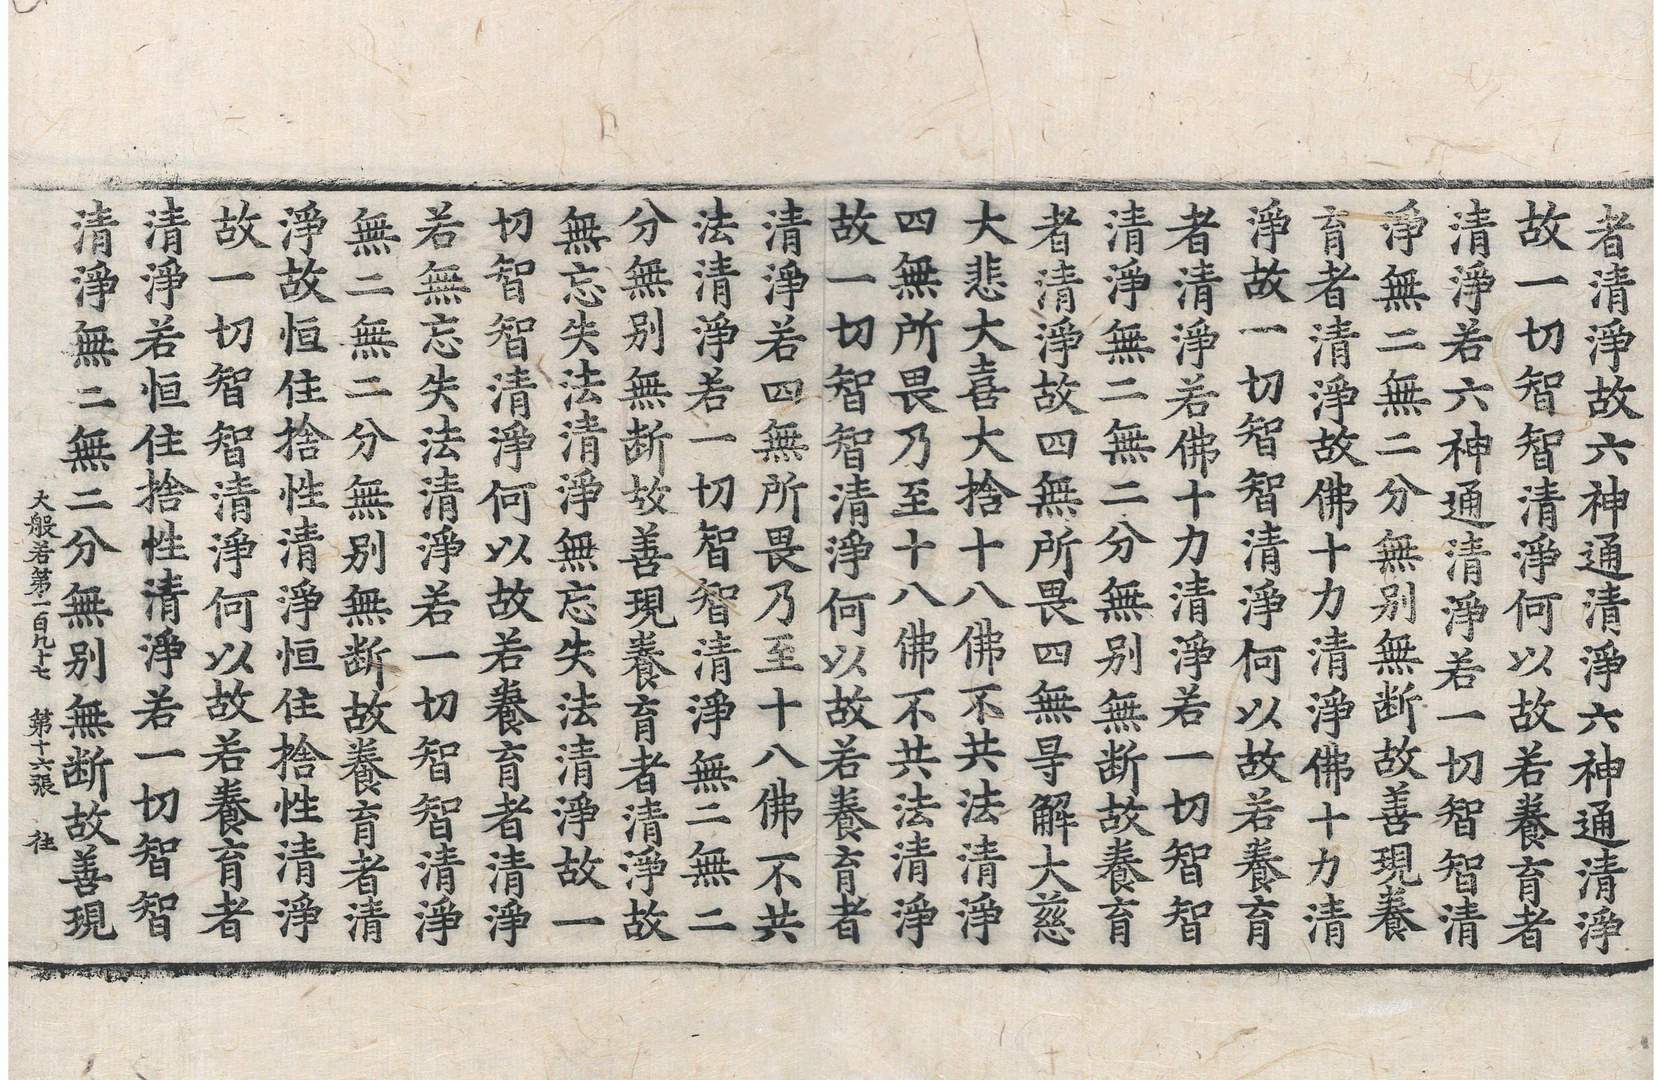 者清淨故六神通清淨六神通清淨
故一切智智清淨何以故若養育者
清淨若六神通清淨若一切智智清
淨無二無二分無別無断故善現養
育者清淨故佛十力清淨佛十力清
淨故一切智智清淨何以故若養育
者清淨若佛十力清淨若一切智智
清淨無二無二分無別無断故養育
者清淨故四無所畏四無㝵解大慈
大悲大喜大捨十八佛不共法清淨
四無所畏乃至十八佛不共法清淨
故一切智智清淨何以故若養育者
清淨若四無所畏乃至十八佛不共
法清淨若一切智智清淨無二無二
分無別無断故善現養育者清淨故
無忘失法清淨無忘失法清淨故一
切智智清淨何以故若養育者清淨
若無忘失法清淨若一切智智清淨
無二無二分無別無断故養育者清
淨故恒住捨性清淨恒住捨性清淨
故一切智智清淨何以故若養育者
清淨若恒住捨性清淨若一切智智
清淨無二無二分無別無断故善現
大般若第一百九十七 第十六張 往